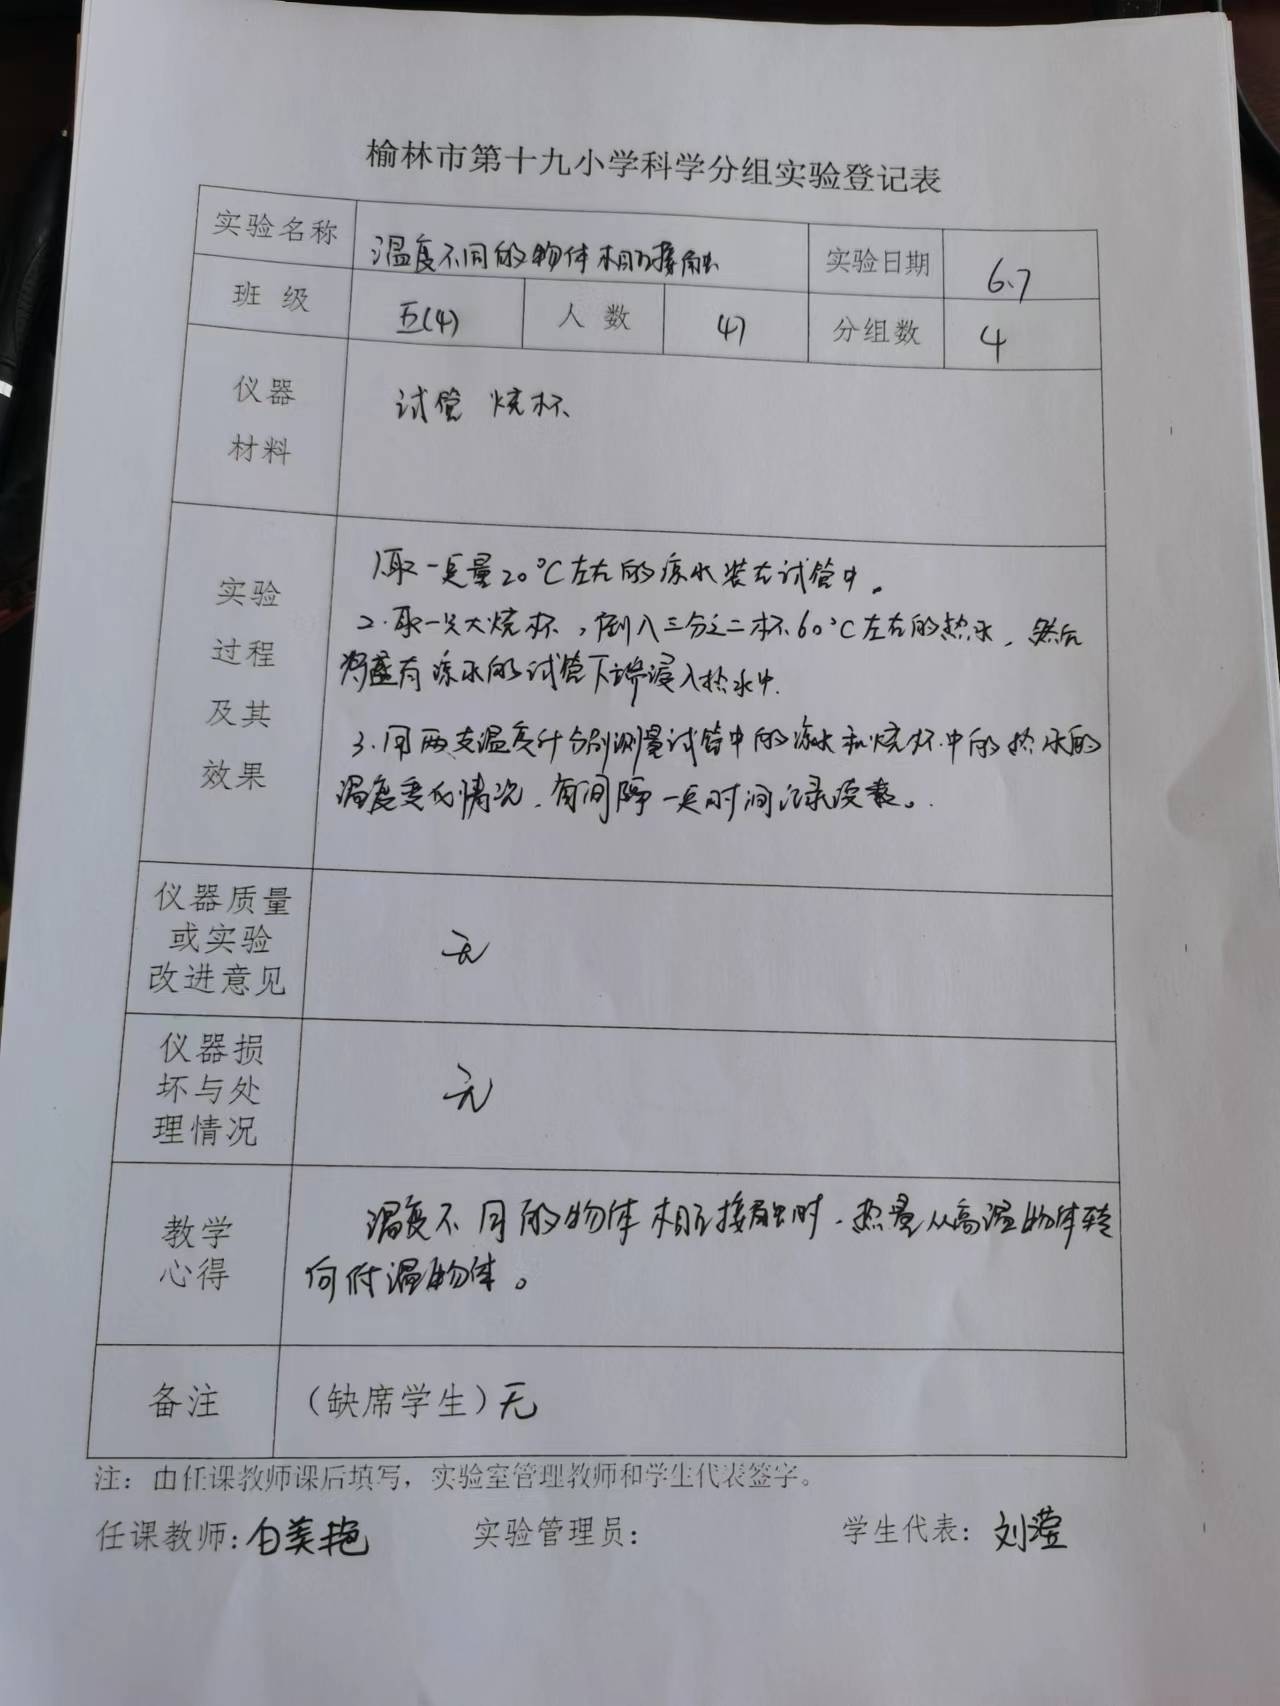 榆林市第十九小学科学分组实验登记表
实验名称 温度不同的物体相互接触 实验日期 6.7
班 级 五(4) 人 数 47 分组数 4
仪器
材料
试管 烧杯
实验
过程
及其
效果
1.取一定量20°C左右的凉水装在试管中。
2.取一只大烧杯,倒入三分之二杯60°C左右的热水,然后
将盛有凉水的试管下端浸入热水中.
3.用两支温度计分别测量试管中的凉水和烧杯中的热水的
温度变化情况,间隔一定时间记录读数。
仪器质量
或实验
改进意见
无
仪器损
坏与处
理情况
无
教学
心得
温度不同的物体相互接触时,热量从高温物体转
向低温物体。
备注 (缺席学生)无
注:由任课教师课后填写,实验室管理教师和学生代表签字。
任课教师:白美艳 实验管理员: 学生代表:刘滢